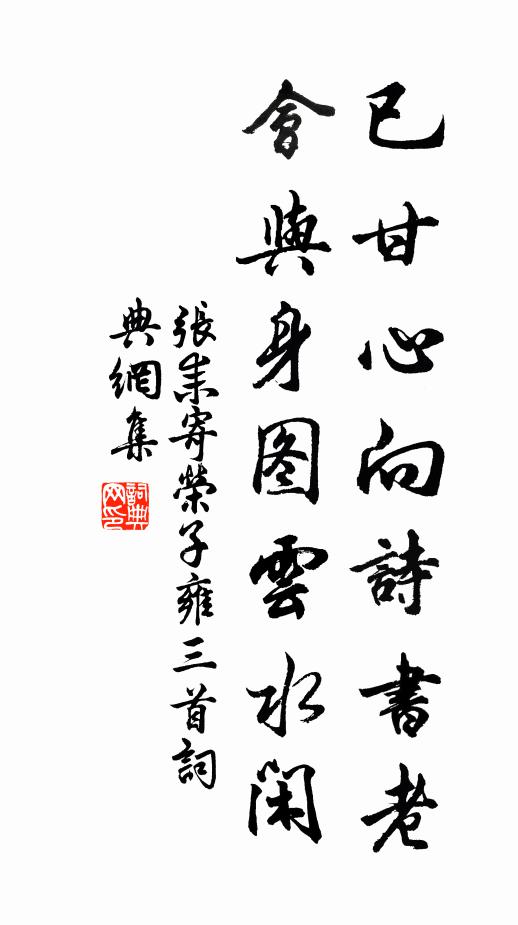 已甘心向詩書老
會與身图雲水闲
張耒寄榮子雍三首詞
典網集
詞典网印